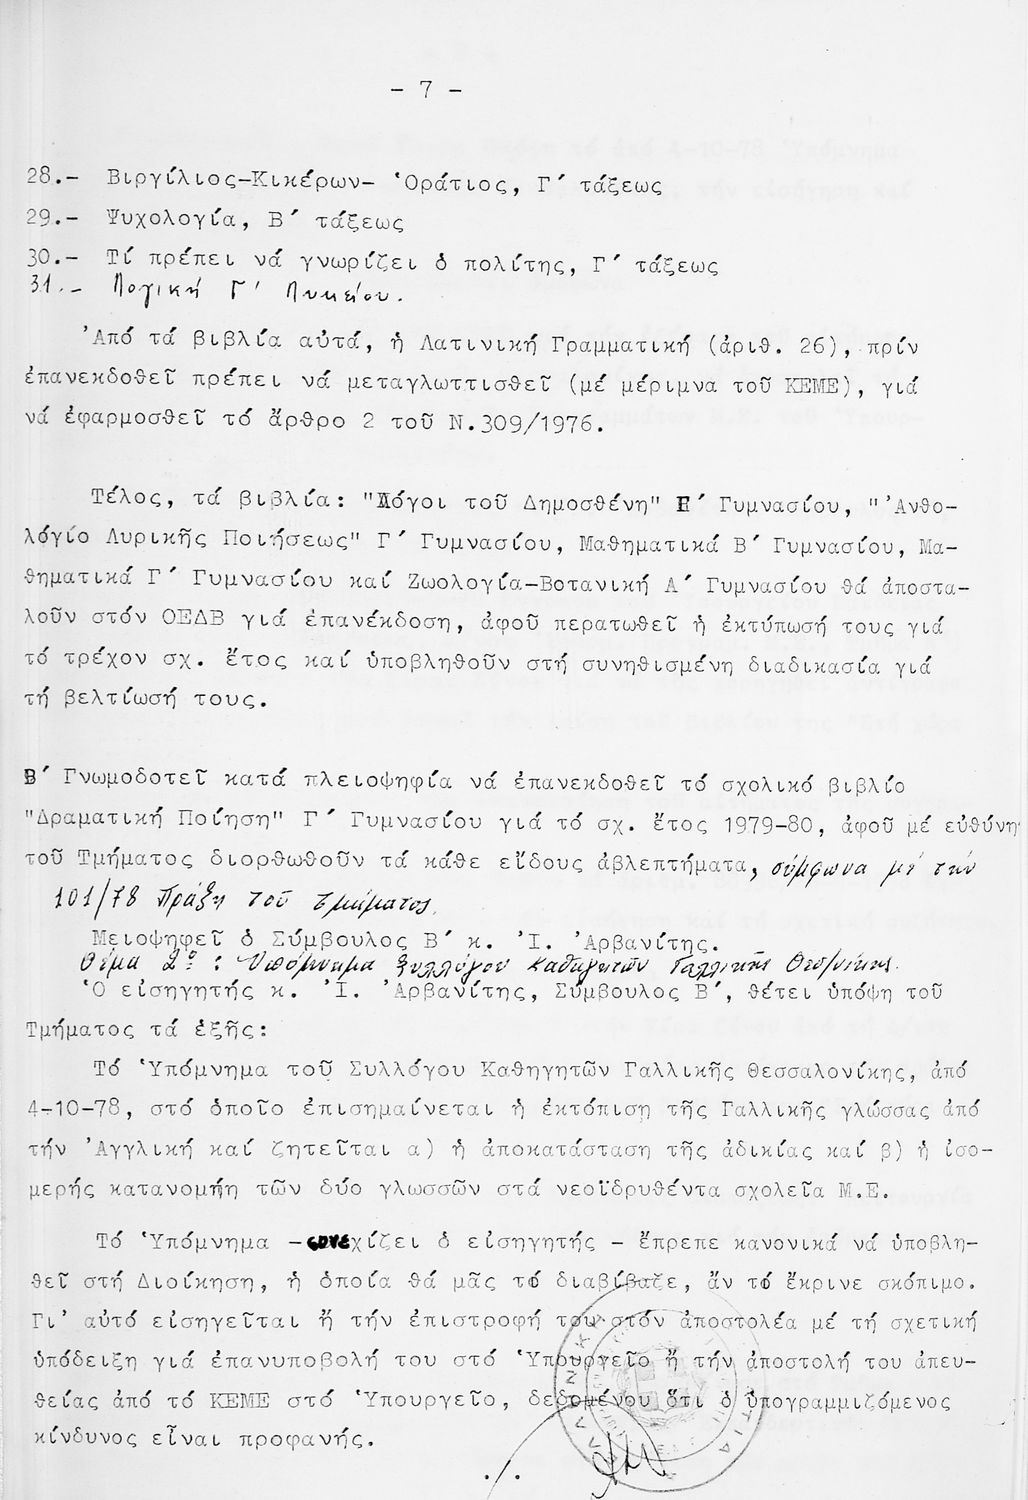 - 7 -
28.- Βιργίλιος-Κικέρων- Ὁράτιος, Γ΄ τάξεως
29.- Ψυχολογία, Β΄ τάξεως
30.- Τί πρέπει νά γνωρίζει ὁ πολίτης, Γ΄ τάξεως
31.- Λογική Γ΄ Λυκείου.
Ἀπό τά βιβλία αὐτά, ἡ Λατινική Γραμματική (ἀριθ. 26), πρίν
ἐπανεκδοθεῖ πρέπει νά μεταγλωττισθεῖ (μέ μέριμνα τοῦ ΚΕΜΕ), γιά
νά ἐφαρμοσθεῖ τό ἄρθρο 2 τοῦ Ν.309/1976.
Τέλος, τά βιβλία: "Λόγοι τοῦ Δημοσθένη" Ε΄ Γυμνασίου, "Ἀνθο-
λόγιο Λυρικῆς Ποιήσεως" Γ΄ Γυμνασίου, Μαθηματικά Β΄ Γυμνασίου, Μα-
θηματικά Γ΄ Γυμνασίου καί Ζωολογία-Βοτανική Α΄ Γυμνασίου θά ἀποστα-
λοῦν στόν ΟΕΔΒ γιά ἐπανέκδοση, ἀφοῦ περατωθεῖ ἡ ἐκτύπωσή τους γιά
τό τρέχον σχ. ἔτος καί ὑποβληθοῦν στή συνηθισμένη διαδικασία γιά
τή βελτίωσή τους.
Β΄ Γνωμοδοτεῖ κατά πλειοψηφία νά ἐπανεκδοθεῖ τό σχολικό βιβλίο
"Δραματική Ποίηση" Γ΄ Γυμνασίου γιά τό σχ. ἔτος 1979-80, ἀφοῦ μέ εὐθύνη
τοῦ Τμήματος διορθωθοῦν τά κάθε εἴδους ἀβλεπτήματα, σύμφωνα μέ τήν
101/78 Πράξη τοῦ τμήματος.
Μειοψηφεῖ ὁ Σύμβουλος Β΄ κ. Ἰ. Ἀρβανίτης.
Θέμα 2ο: Ὑπόμνημα Συλλόγου Καθηγητῶν Γαλλικῆς Θεσ/νίκης.
Ὁ εἰσηγητής κ. Ἰ. Ἀρβανίτης, Σύμβουλος Β΄, θέτει ὑπόψη τοῦ
Τμήματος τά ἑξῆς:
Τό Ὑπόμνημα τοῦ Συλλόγου Καθηγητῶν Γαλλικῆς Θεσσαλονίκης, ἀπό
4-10-78, στό ὁποῖο ἐπισημαίνεται ἡ ἐκτόπιση τῆς Γαλλικῆς γλώσσας ἀπό
τήν Ἀγγλική καί ζητεῖται α) ἡ ἀποκατάσταση τῆς ἀδικίας καί β) ἡ ἰσο-
μερής κατανομήη τῶν δύο γλωσσῶν στά νεοϊδρυθέντα σχολεῖα Μ.Ε.
Τό Ὑπόμνημα -συνεχίζει ὁ εἰσηγητής - ἔπρεπε κανονικά νά ὑποβλη-
θεῖ στή Διοίκηση, ἡ ὁποία θά μᾶς τό διαβίβαζε, ἄν τό ἔκρινε σκόπιμο.
Γι' αὐτό εἰσηγεῖται ἤ τήν ἐπιστροφή του στόν ἀποστολέα μέ τή σχετική
ὑπόδειξη γιά ἐπανυποβολή του στό Ὑπουργεῖο ἤ τήν ἀποστολή του ἀπευ-
θείας ἀπό τό ΚΕΜΕ στό Ὑπουργεῖο, δεδομένου ὅτι ὁ ὑπογραμμιζόμενος
κίνδυνος εἶναι προφανής.
./.